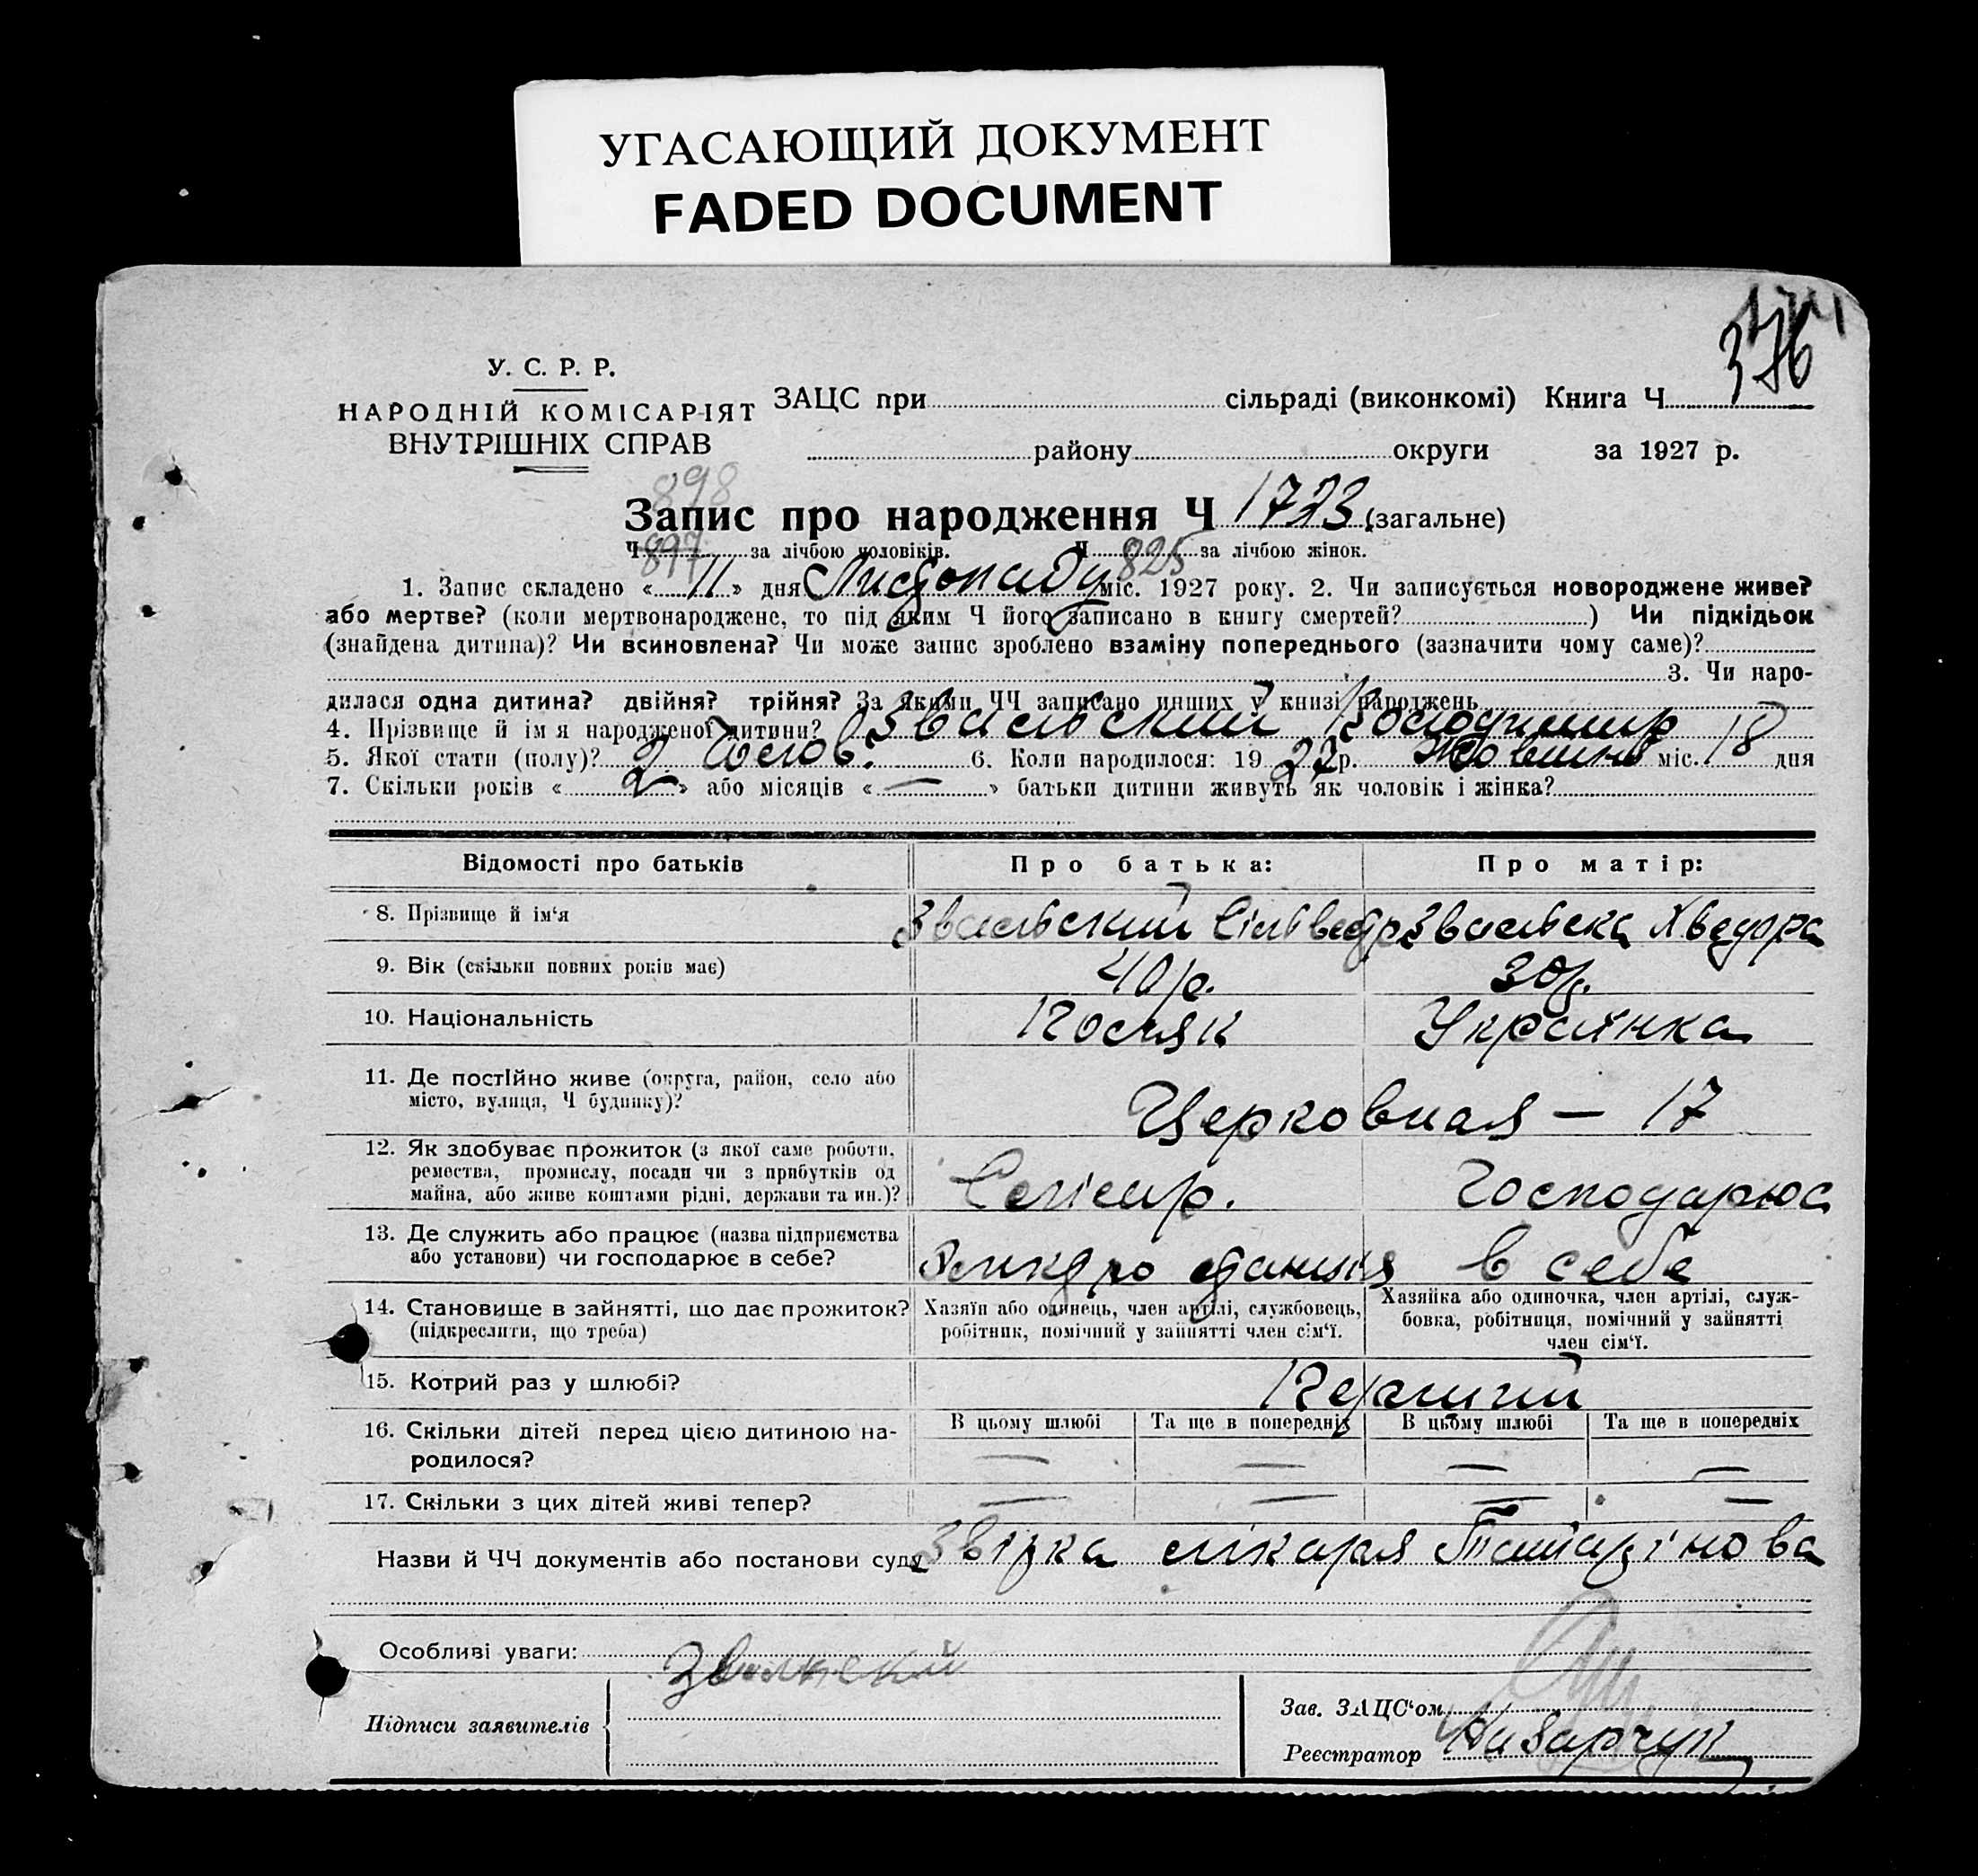 УГАСАЮЩИЙ ДОКУМЕНТ
FADED DOCUMENT
376
У. С. Р. Р.
НАРОДНІЙ КОМІСАРІЯТ
ВНУТРІШНІХ СПРАВ
ЗАЦС при сільраді (виконкомі) Книга Ч
району округи за 1927 р.
898
Запис про народження Ч 1723 (загальне)
Ч 897 за лічбою чоловіків. Ч 825 за лічбою жінок.
1. Запис складено « 11 » дня Листопаду міс. 1927 року. 2. Чи записується новороджене живе?
або мертве? (коли мертвонароджене, то під яким Ч його записано в книгу смертей? ) Чи підкідьок
(знайдена дитина)? Чи всиновлена? Чи може запис зроблено взаміну попереднього (зазначити чому саме)?
3. Чи наро-
дилася одна дитина? двійня? трійня? За якими ЧЧ записано инших у книзі народжень
4. Прізвище й ім я народженої дитини? Звальський
5. Якої стати (полу)? 2 Чолов. 6. Коли народилося: 19 27 р. Жовтня міс. 18 дня
7. Скільки років « 2 » або місяців « — » батьки дитини живуть як чоловік і жінка?
Відомості про батьків
Про батька:
Про матір:
8. Прізвище й ім‘я
Звальський Сільвестр
Звальська Хведора
9. Вік (скільки повних років має)
40 р.
30 р.
10. Національність
Поляк
Українка
11. Де постійно живе (округа, район, село або
місто, вулиця, Ч будинку)?
Церковная — 17
12. Як здобуває прожиток (з якої саме роботи,
ремества, промислу, посади чи з прибутків од
майна, або живе коштами рідні, держави та ин.)?
Господарює
13. Де служить або працює (назва підприємства
або установи) чи господарює в себе?
станція
в себе
14. Становище в зайнятті, що дає прожиток?
(підкреслити, що треба)
Хазяїн або одинець, член артілі, службовець,
робітник, помічний у зайнятті член сім‘ї.
Хазяйка або одиночка, член артілі, служ-
бовка, робітниця, помічний у зайнятті
член сім‘ї.
15. Котрий раз у шлюбі?
Перший
16. Скільки дітей перед цією дитиною на-
родилося?
В цьому шлюбі
Та ще в попередніх
В цьому шлюбі
Та ще в попередніх
— — — —
17. Скільки з цих дітей живі тепер?
— — — —
Назви й ЧЧ документів або постанови суду Звізка лікаря
Особливі уваги:
Звальский
Підписи заявителів
Зав. ЗАЦС‘ом
Реєстратор